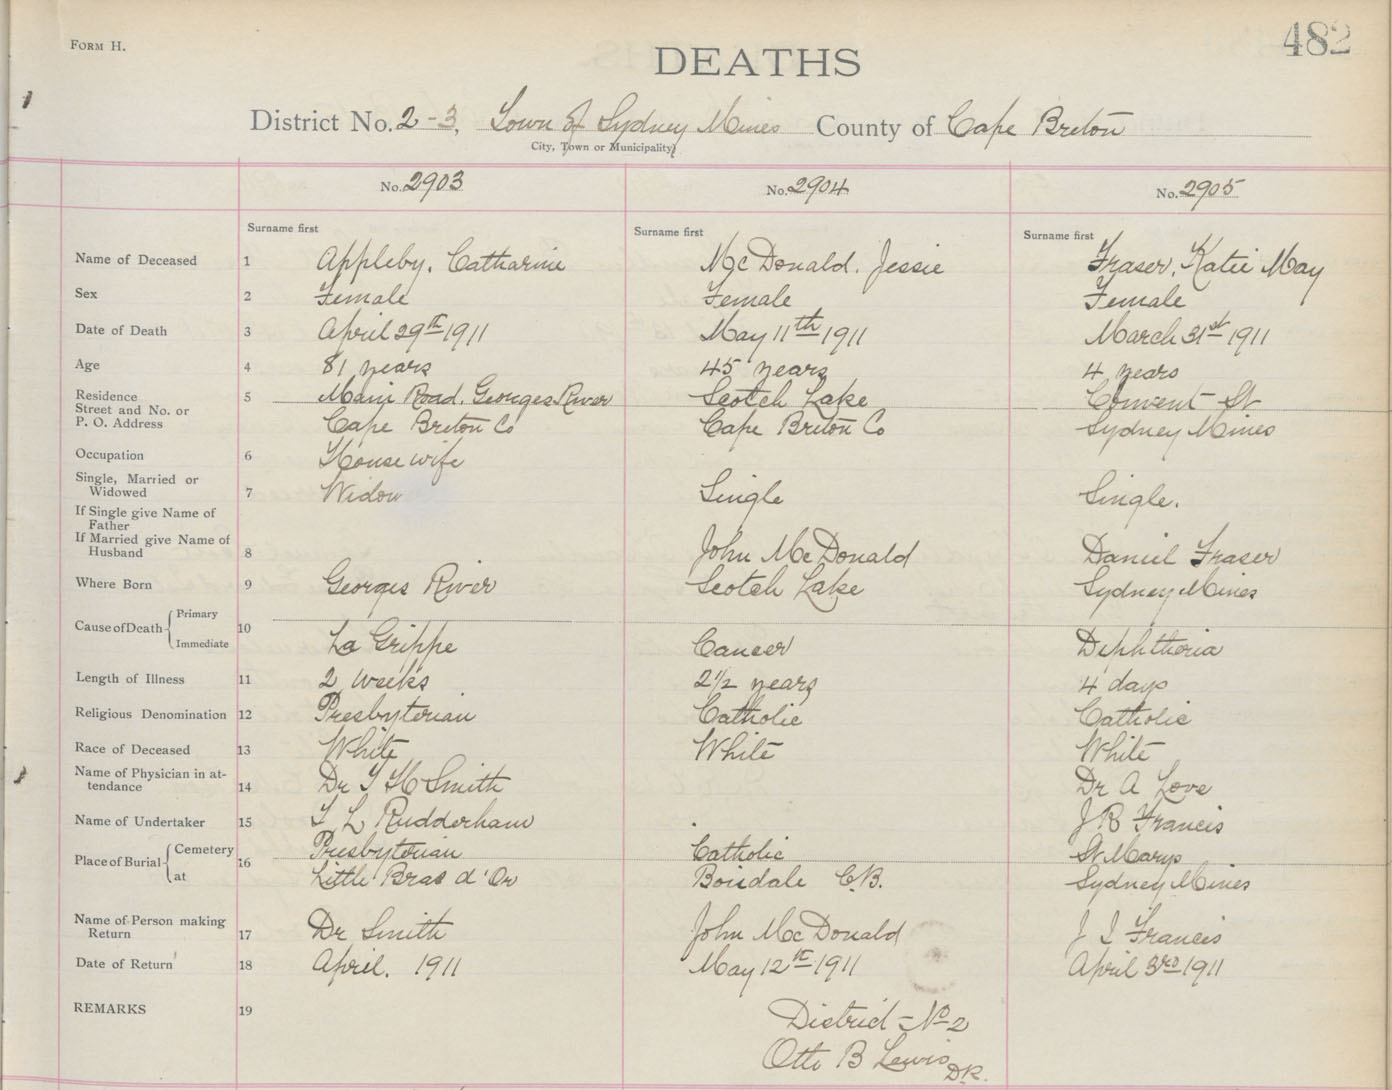 FORM H.
482
DEATHS
District No. 2-3, Town of Sydney Mines County of Cape Breton
City, Town or Municipality
No. 2903 No. 2904 No. 2905
Surname first Surname first Surname first
Name of Deceased 1 Appleby, Catharine McDonald. Jessie Fraser, Katie May
Sex 2 Female Female Female
Date of Death 3 April 29th 1911 May 11th 1911 March 31st 1911
Age 4 81 years 45 years 4 years
Residence 5 Main Road. Georges River Scotch Lake Convent St
Street and No. or
P. O. Address Cape Breton Co Cape Breton Co Sydney Mines
Occupation 6 House wife
Single, Married or
Widowed 7 Widow Single Single.
If Single give Name of
Father
If Married give Name of
Husband 8 John McDonald Daniel Fraser
Where Born 9 Georges River Scotch Lake Sydney Mines
Cause of Death Primary
10
Immediate La Grippe Cancer Diphtheria
Length of Illness 11 2 weeks 2 1/2 years 4 days
Religious Denomination 12 Presbyterian Catholic Catholic
Race of Deceased 13 White White White
Name of Physician in at-
tendance 14 Dr Smith Dr A Love
Name of Undertaker 15 L Rudderham J R Francis
Place of Burial Cemetery 16 Presbyterian Catholic St Marys
at Little Bras d'Or Boisdale C.B. Sydney Mines
Name of Person making
Return 17 Dr Smith John McDonald J J Francis
Date of Return 18 April. 1911 May 12th 1911 April 3rd 1911
REMARKS 19 District No 2
Otto B Lewis D.R.